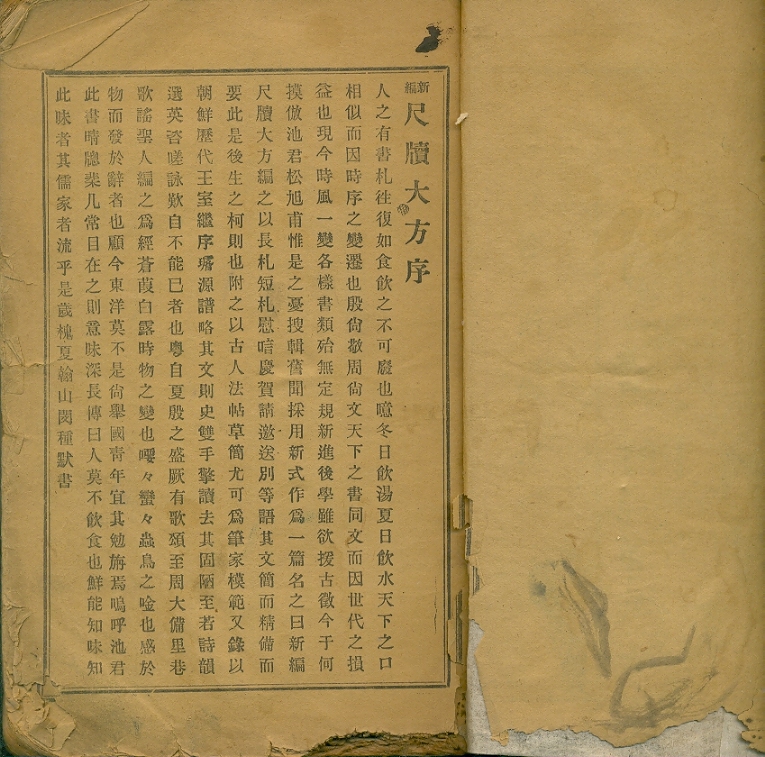 新編尺牘大方序
人之有書札往復如食飮之不可廢也噫冬日飮湯夏日飮水天下之口
相似而因時序之變遷也殷尙敬周尙文天下之書同文而因世代之損
益也現今時風一變各樣書類殆無定規新進後學雖欲援古徵今于何
摸倣池君松旭甫惟是之憂搜輯舊聞採用新式作爲一篇名之曰新編
尺牘大方編之以長札短札慰唁慶賀請邀送別等語其文簡而精備而
要此是後生之柯則也附之以古人法帖草簡尤可爲筆家模範又錄以
朝鮮歷代王室繼序璿源譜略其文則史雙手擎讀去其固陋至若詩韻
選英咨嗟詠歎自不能已者也粤自夏殷之盛厥有歌頌至周大備里巷
歌謠聖人編之爲經蒼葭白露時物之變也嚶々蠻々蟲鳥之唫也感於
物而發於辭者也顧今東洋莫不是尙擧國靑年宜其勉旃焉嗚呼池君
此書晴牕棐几常目在之則意味深長傳曰人莫不飮食也鮮能知味知
此味者其儒家者流乎是歲槐夏翰山閔種默書